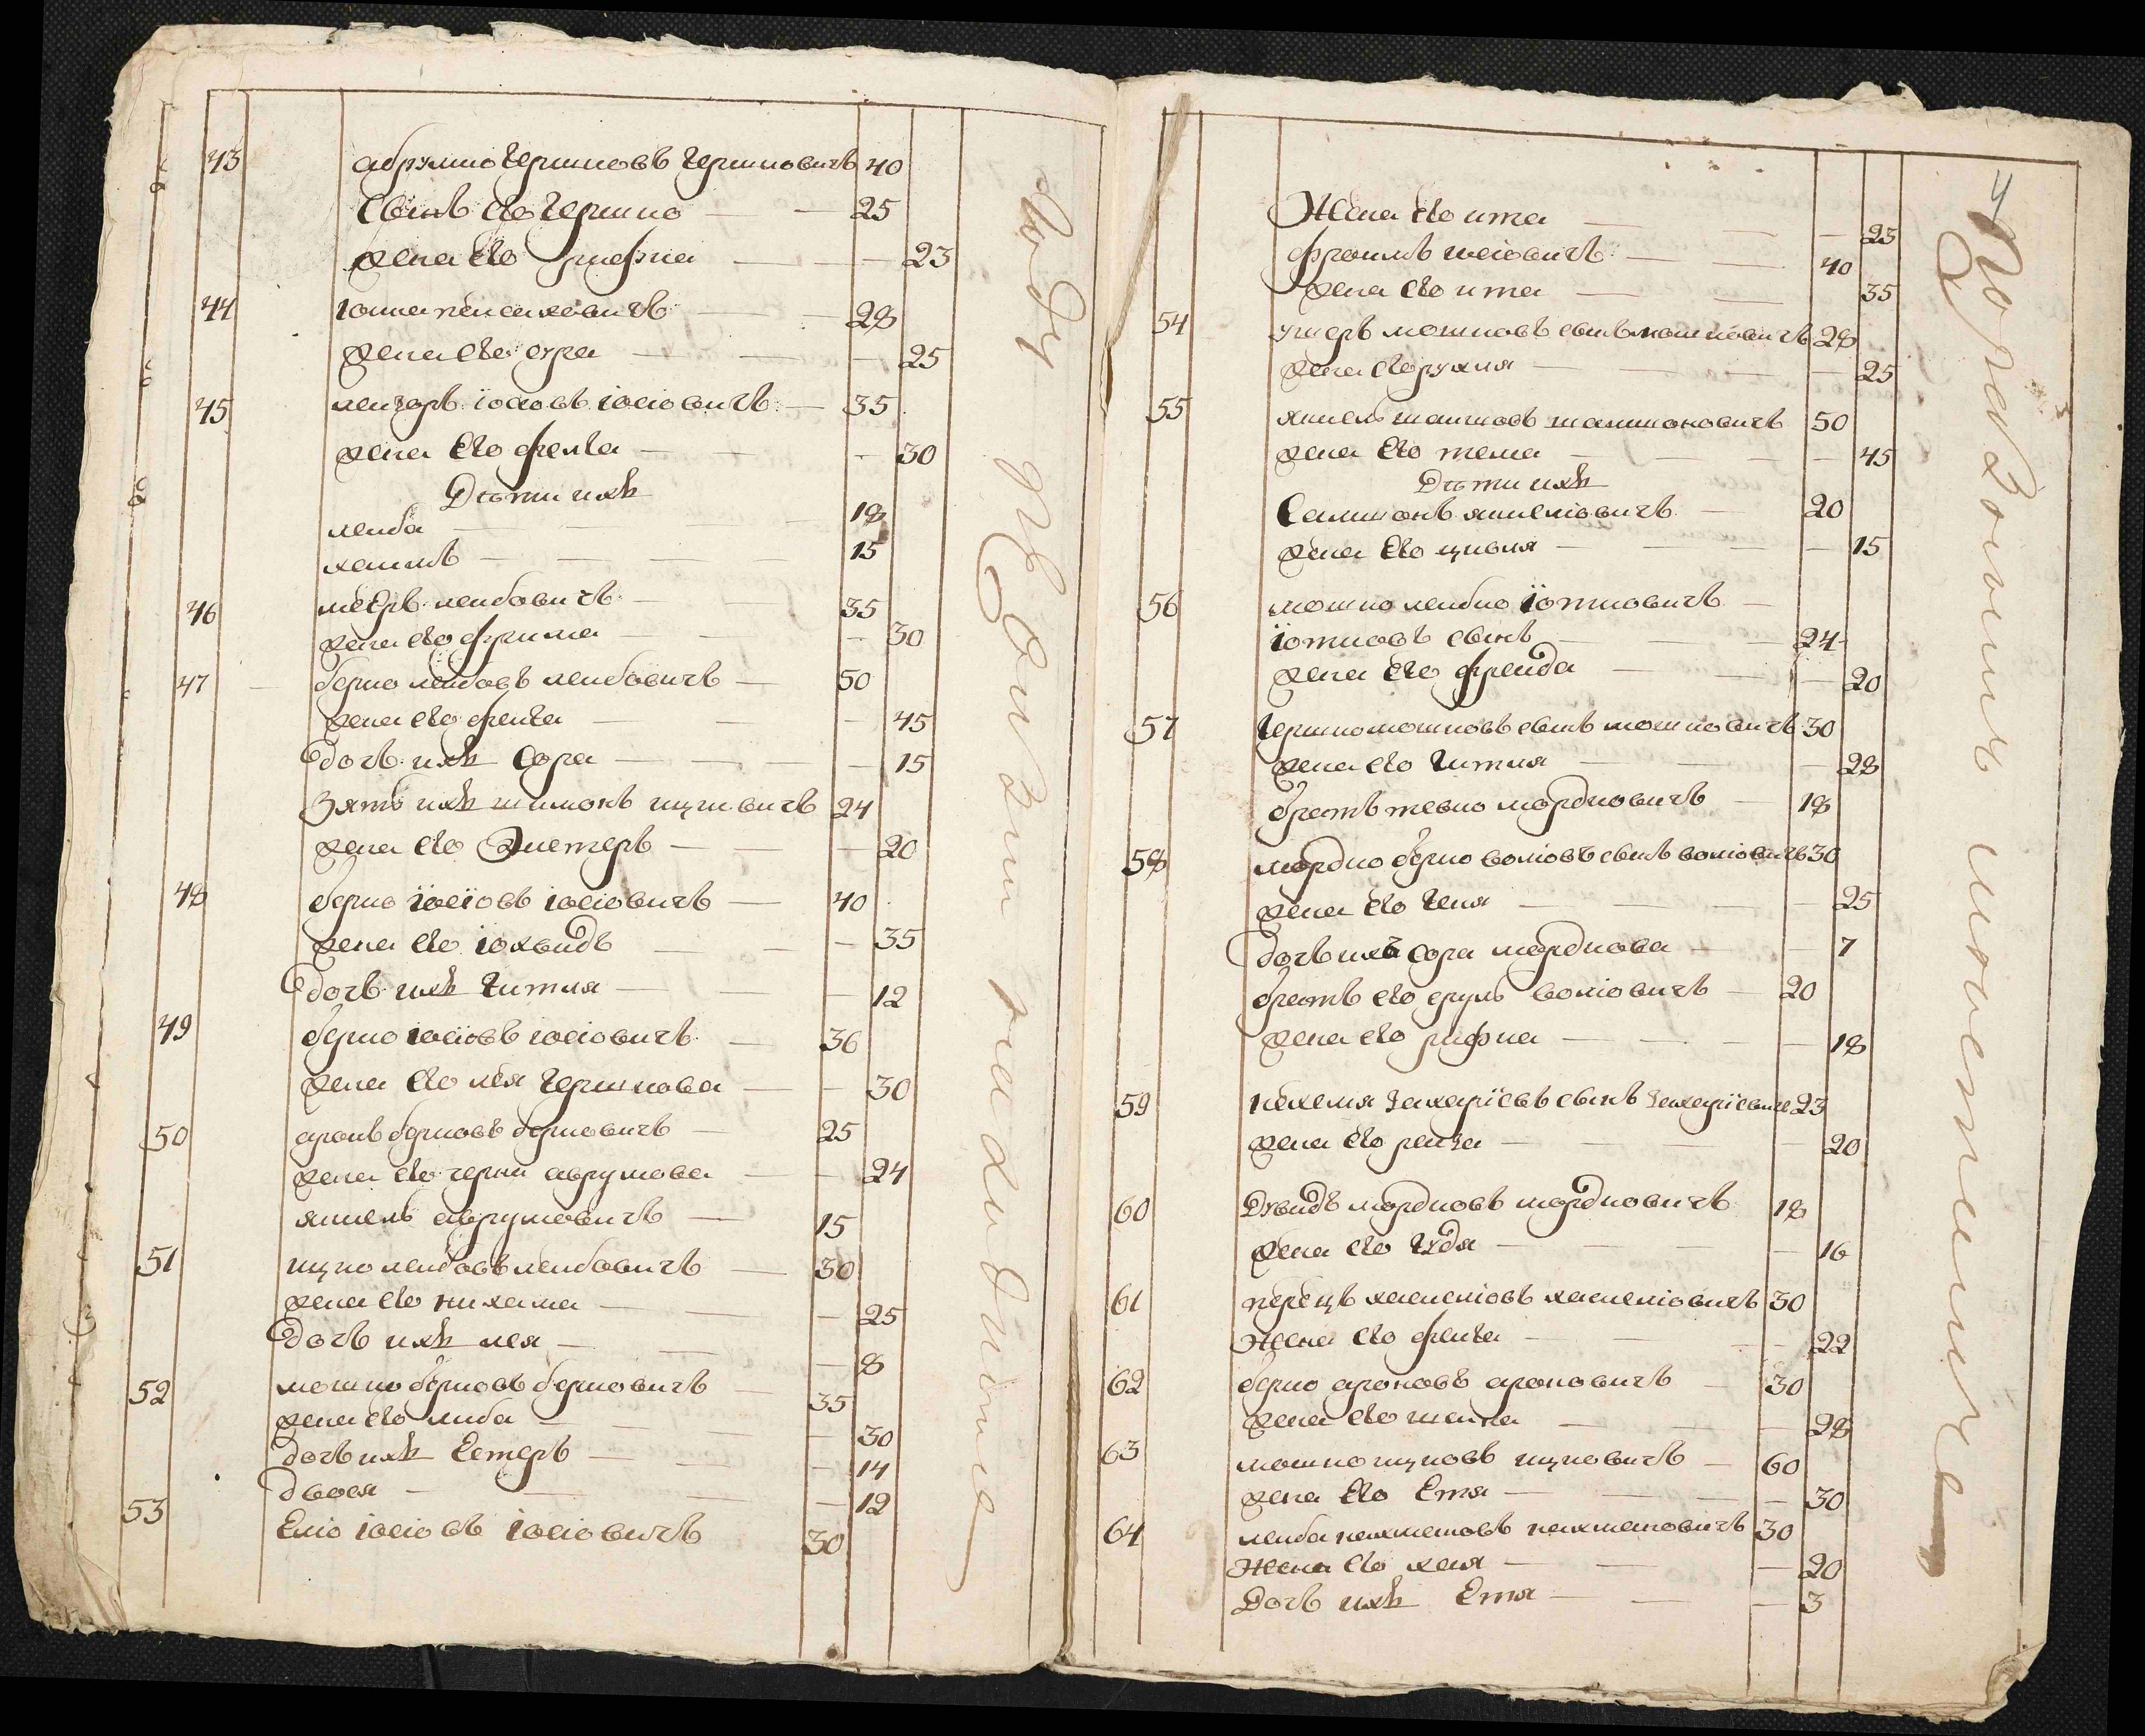 43 абрумко гершковъ гершковичъ 40
Свинъ его гершко 25
жена его рифка 23
44 іошапейсаховичъ 28
жена его сура 25
45 лейзоръ іосіовъ іосіовичъ 35
жена его фейга 30
Дѣти ихъ
лейба 18
хаимъ 15
46 мееръ лейбовичъ 35
жена его фрима 30
47 берко лейбовъ лейбовичъ 50
жена его фейга 45
дочь ихъ сора 15
Зять ихъ шимонъ ицковичъ 24
жена его Эистеръ 20
48 берко іосіовъ іосіовичъ 40
жена его іохвидъ 35
дочь ихъ гитля 12
49 берко іосіовъ іосіовичъ 36
жена его лея гершкова 30
50 аронъ берковъ берковичъ 25
жена его черни аврумова 24
янкель аврумовичъ 15
51 ицко лейбовъ лейбовичъ 30
жена его нихама 25
дочь ихъ лея 8
52 мошко берковъ берковичъ 35
жена его либа 30
дочь ихъ Естеръ 14
двося 12
53 Еліо іосіовъ іосіовичъ 30
4
Жена его ита 23
фроимъ іосіовичъ 40
жена его ита 35
54 ушеръ мошковъ свинъ мошковичъ 28
жена его рухля 25
55 янкель шаишовъ шамшоновичъ 50
жена его тема 45
Дѣти ихъ
Самшонъ янкеліовичъ 20
жена его цивля 15
56 мошко лейбко іоткович
іотковъ свинъ 24
жена его фрейда 20
57 гершко мошковъ свинъ мошковичъ 30
жена его гитля 28
братъ тевко мордковичъ 18
58 мордко берко воліовъ свинъ воліовичъ 30
жена его геня 25
дочь ихъ сора мордкова 7
братъ его сруль воліовичъ 20
жена его рифка 18
59 нехемя захаріевъ свинъ захаріевиче 23
жена его рейза 20
60 Давидъ мордковъ мордковичъ 18
жена его гудя 16
61 перецъ хаскеліовъ хаскеліовичъ 30
Жена его фейга 22
62 берко ароновъ ароновичъ 30
жена его шейна 28
63 мошко ицковъ ицковичъ 60
жена его Етя 30
64 лейба нахмановъ нахмановичъ 30
Жена его хая 20
Дочь ихъ Етя 3